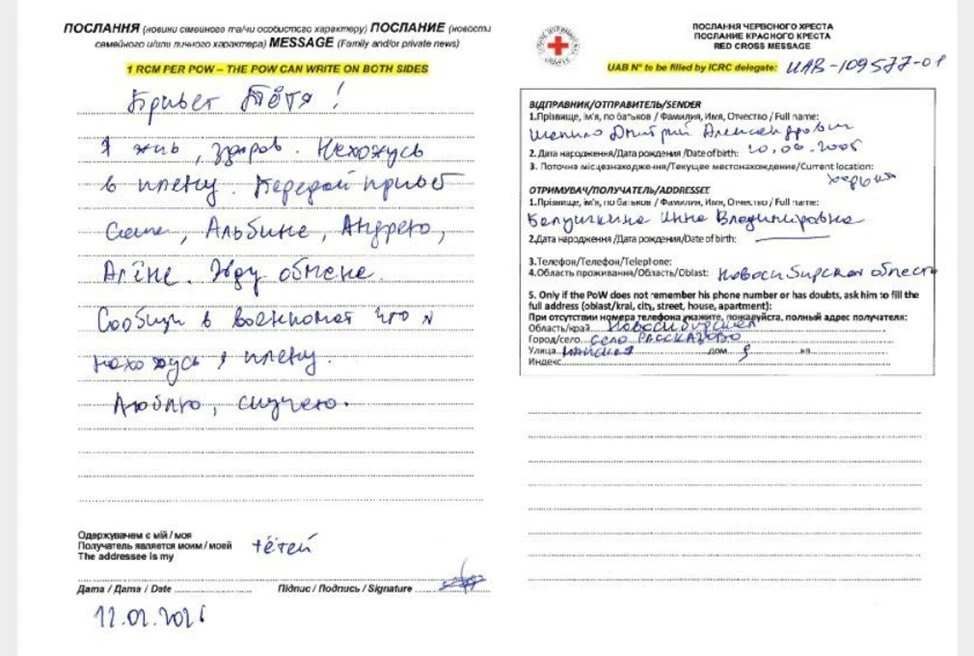 ПОСЛАННЯ (новини сімейного та/чи особистого характеру) ПОСЛАНИЕ (новости
семейного и/или личного характера) MESSAGE (Family and/or private news)
1 RCM PER POW – THE POW CAN WRITE ON BOTH SIDES
Привет Тётя!
Я жив, здоров. Нахожусь
в плену. Передай привет
Саше, Альбине, Андрею,
Алёне. Жду обмена.
Сообщи в военкомат что я
нахожусь в плену.
Люблю, скучаю.
Одержувачем є мій / моя
Получатель является моим / моей
The addressee is my
тётей
Дата / Дата / Date
Підпис / Подпись / Signature
12.02.2026
ПОСЛАННЯ ЧЕРВОНОГО ХРЕСТА
ПОСЛАНИЕ КРАСНОГО КРЕСТА
RED CROSS MESSAGE
UAB N° to be filled by ICRC delegate: UAB-109577-01
ВІДПРАВНИК/ОТПРАВИТЕЛЬ/SENDER
1.Прізвище, ім'я, по батьков / Фамилия, Имя, Отчество / Full name:
Дмитрий Александрович
2. Дата народження/Дата рождения /Date of birth:
3. Поточна місцезнаходження/Текущее местонахождение/Current location:
ОТРИМУВАЧ/ПОЛУЧАТЕЛЬ/ADDRESSEE
1.Прізвище, ім'я, по батьков / Фамилия, Имя, Отчество / Full name:
Инна Владимировна
2.Дата народження /Дата рождения/Date of birth:
3.Телефон/Телефон/Telephone:
4.Область проживання/Область/Oblast: Новосибирская область
5. Only if the PoW does not remember his phone number or has doubts, ask him to fill the
full address (oblast/krai, city, street, house, apartment):
При отсутствии номера телефона укажите, пожалуйста, полный адрес получателя:
Область/край Новосибирская
Город/село село Рассказово
Улица дом 9 кв
Индекс